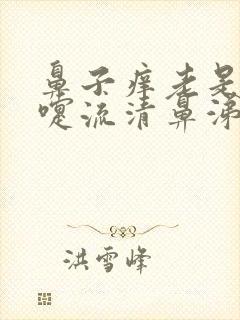 鼻子痒老是
嚏流清鼻涕
洪雪峰